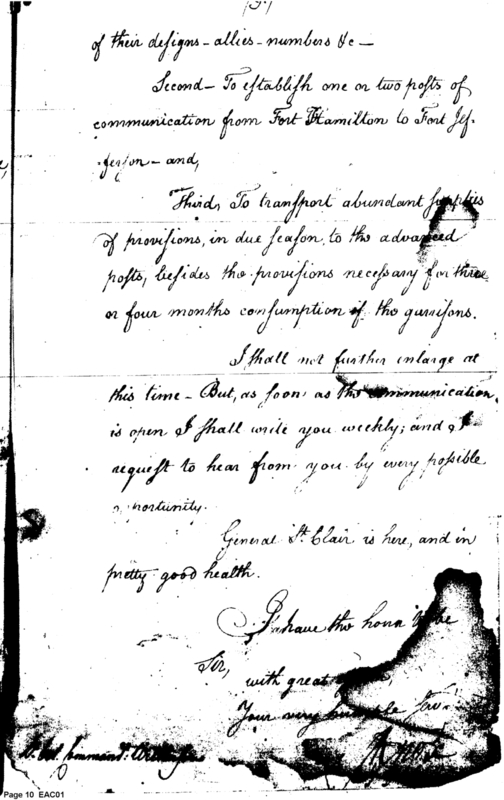 (3.)
of their designs - allies - numbers &c -
Second - To establish one or two posts of
communication from Fort Hamilton to Fort Jef-
-ferson - and,
Third, To transport abundant supplies
of provisions, in due season, to the advanced
posts, besides the provisions necessary for three
or four months consumption of the garrisons.
I shall not further enlarge at
this time - But, as soon as the communication
is open I shall write you weekly; and I
request to hear from you by every possible
opportunity.
General St. Clair is here, and in
pretty good health.
I have the honor to be
Sir,
with great
Your very humble Serv.
Command:
Page 10 EAC01